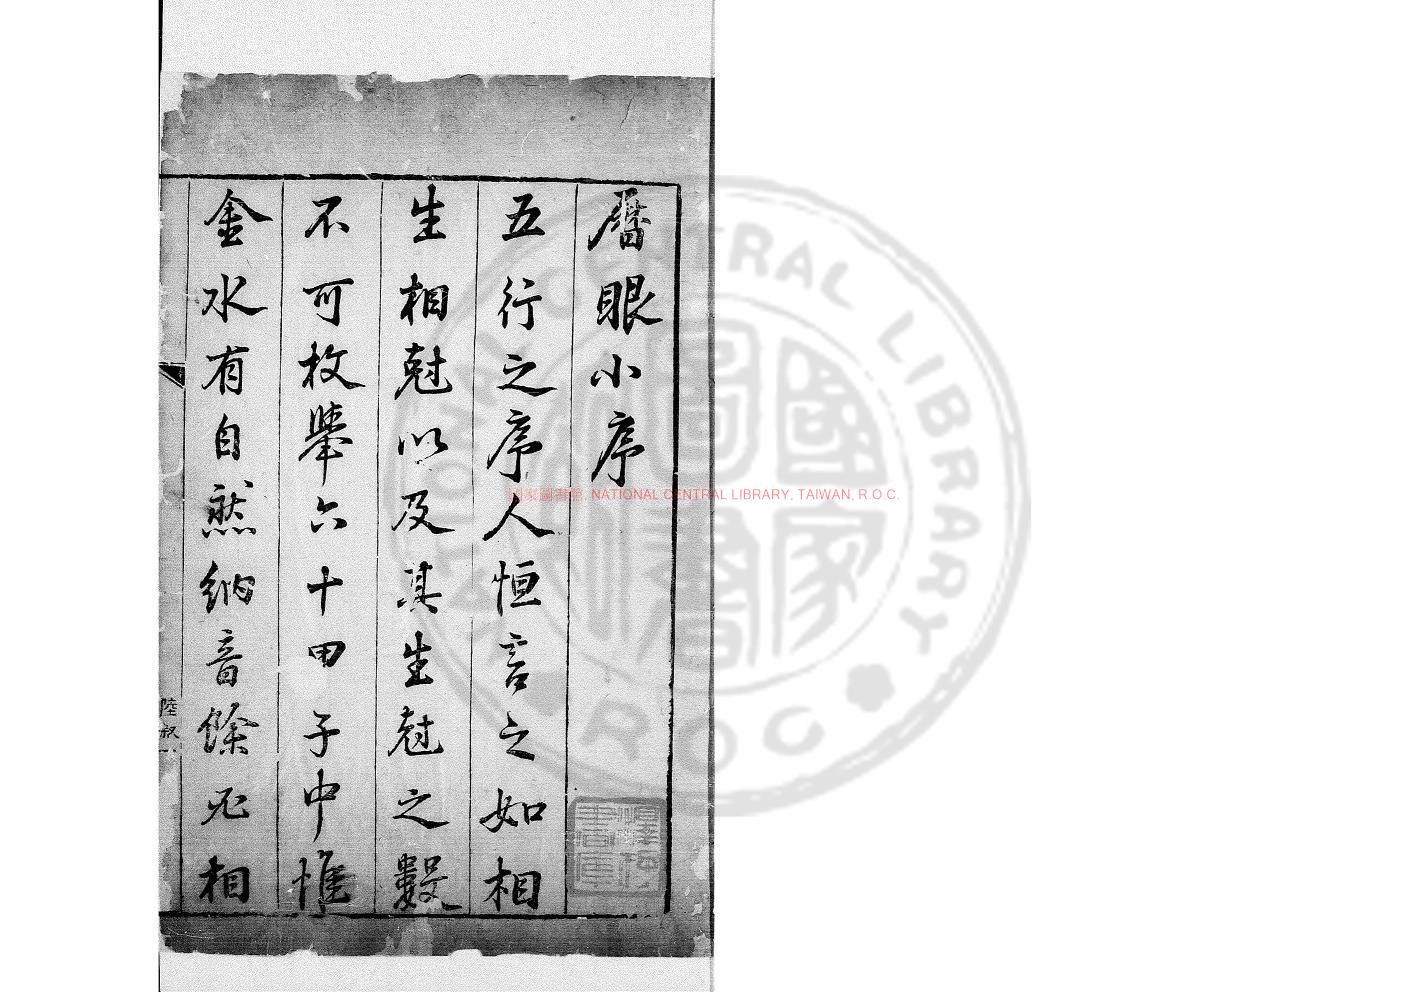 曆眼小序
五行之序人恒言之如相
生相尅以及其生尅之數
不可枚舉六十甲子中惟
金水有自然納音餘必相
陸叔
國家圖書館, NATIONAL CENTRAL LIBRARY, TAIWAN, R.O.C.
NATIONAL CENTRAL LIBRARY
ROC
國家圖書